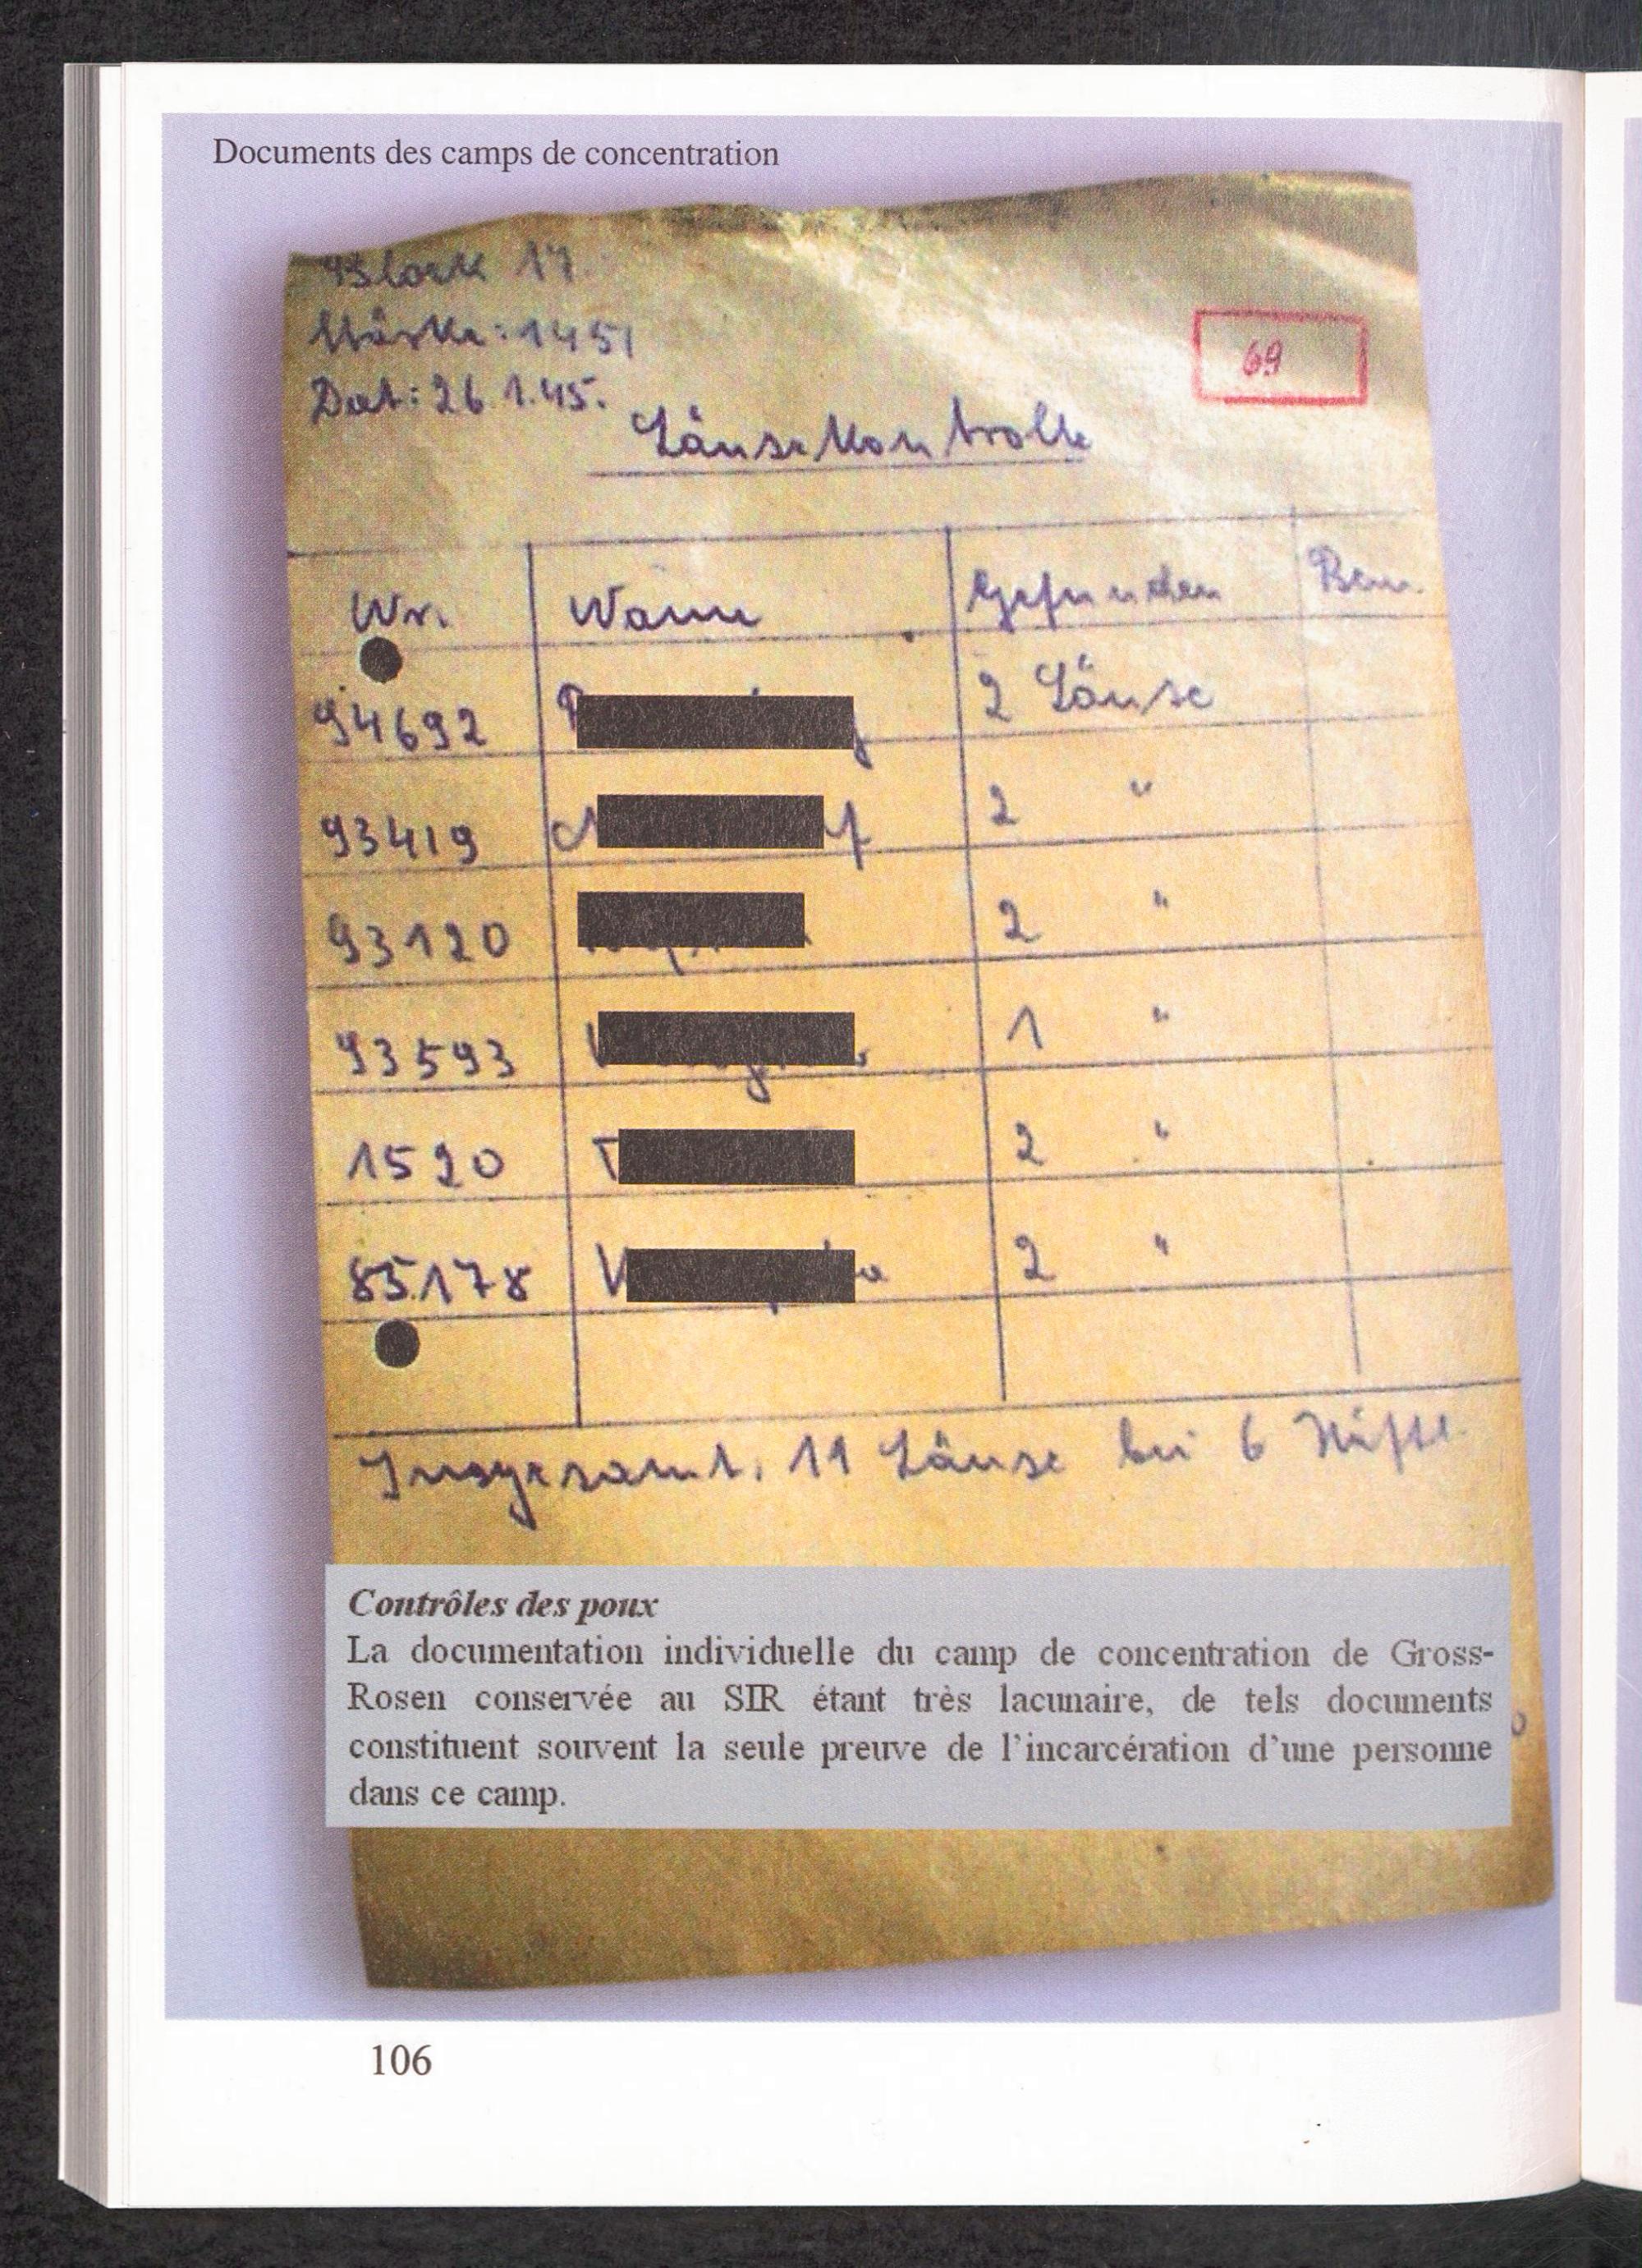 Documents des camps de concentration
Block 17.
Stärke: 1451
Dat: 26.1.45.
69
Läusekontrolle
Nr. Name Gefunden Bem.
94692 2 Läuse
93419 2 "
93120 2 "
93593 1 "
1520 2 "
85178 2 "
Insgesamt. 11 Läuse bei 6 Häftl.
Contrôles des poux
La documentation individuelle du camp de concentration de Gross-
Rosen conservée au SIR étant très lacunaire, de tels documents
constituent souvent la seule preuve de l'incarcération d'une personne
dans ce camp.
106